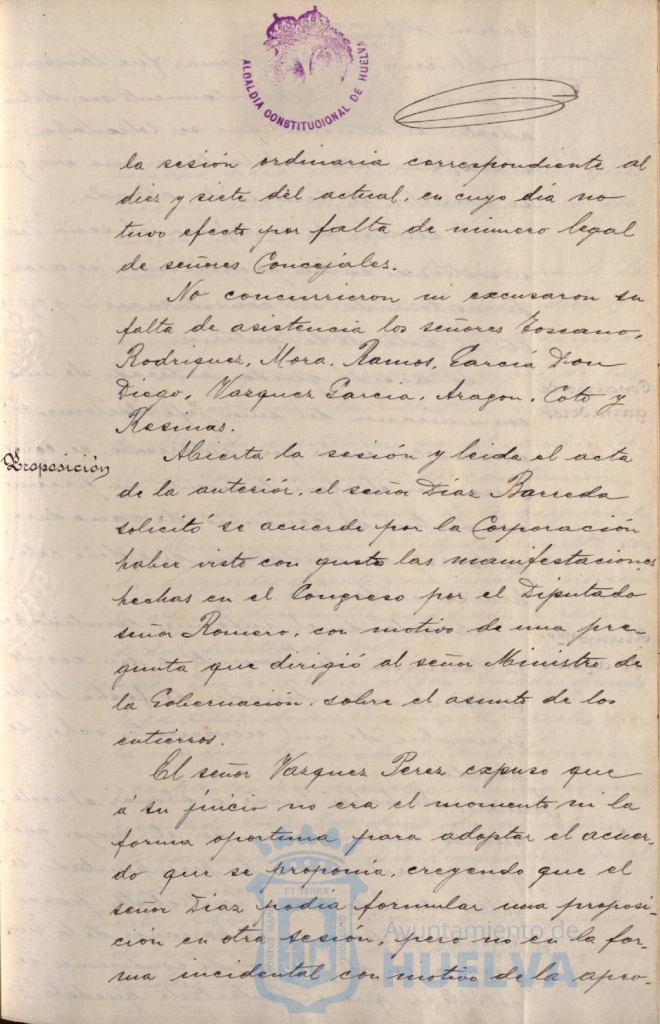 ALCALDÍA CONSTITUCIONAL DE HUELVA
la sesión ordinaria correspondiente al
diez y siete del actual, en cuyo día no
tuvo efecto por falta de número legal
de señores Concejales.
No concurrieron ni excusaron su
falta de asistencia los señores Toscano,
Rodriguez, Mora, Ramos, García Don
Diego, Vazquez Garcia, Aragon, Coto y
Resinas.
Proposición
Abierta la sesión y leida el acta
de la anterior, el señor Díaz Barreda
solicitó se acuerde por la Corporación
haber visto con gusto las manifestaciones
hechas en el Congreso por el Diputado
señor Romero, con motivo de una pre-
gunta que dirigió al señor Ministro de
la Gobernación, sobre el asunto de los
entierros.
El señor Vazquez Perez expuso que
á su juicio no era el momento ni la
forma oportuna para adoptar el acuer-
do que se proponía, creyendo que el
señor Díaz podía formular una proposi-
ción en otra sesión, pero no en la for-
ma incidental con motivo de la apro-
ET TERRÆ
PORTUS MARIS
CUSTODIA
Ayuntamiento de
HUELVA